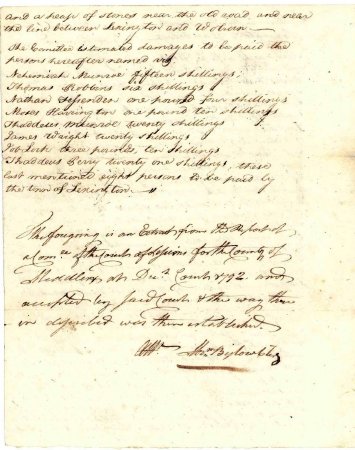 and a heap of stones near the old road and near
the line between Lexington and Woburn.
The Comittee Estimated damages to be paid the
persons hereafter named viz
Nehemiah Munroe fifteen shillings
Thomas Robbins six shillings
Nathan one pound four shillings
Moses Harrington one pound ten shillings
Thaddeus Munroe twenty shillings
James Wright twenty shillings
three pounds, ten shillings
Thaddeus Perry twenty one shillings, these
last mentioned eight persons to be paid by
the town of Lexington.
The foregoing is an Extract from the Report of
a Comee of the Court of Sessions for the County of
Middlesex, at Decr Court 1792 and
accepted by said Court & the way there
in described was then established.
Attr. Thos Bigelow Clerk